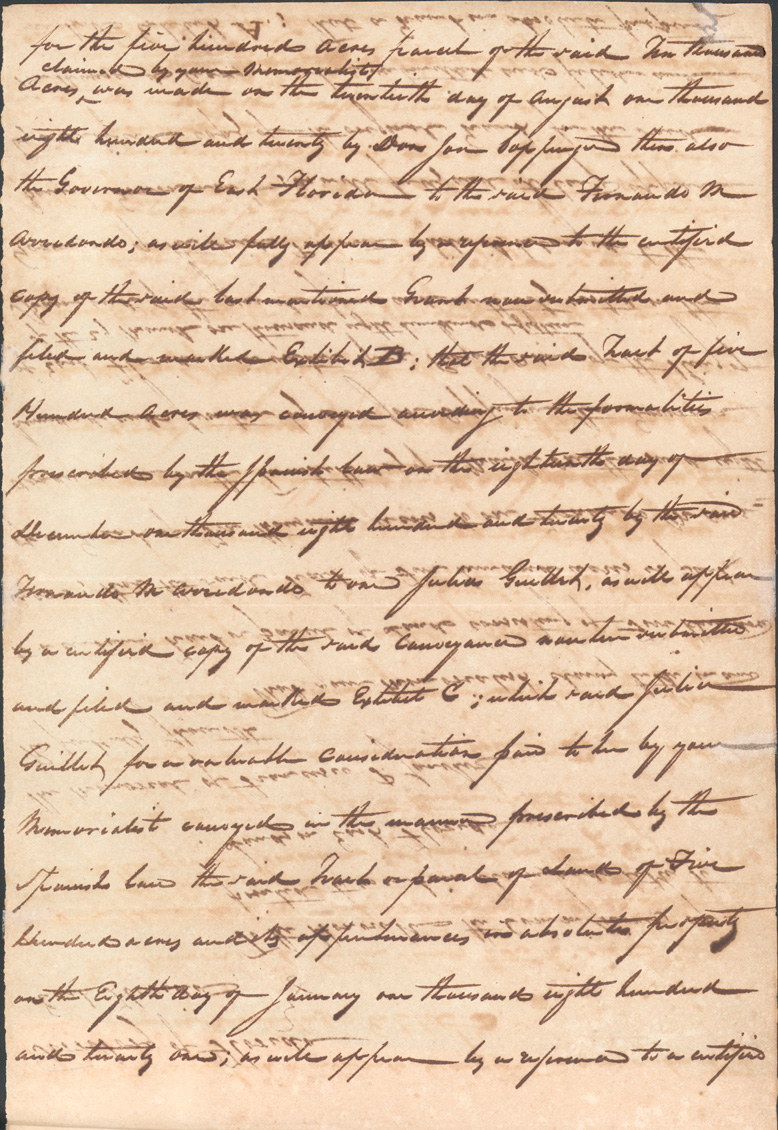 for the five hundred Acres parcel of the said Ten thousand
claimed by your Memorialist
Acres, was made on the twentieth day of August one thousand
eight hundred and twenty by Don Jose Coppinger then also
the Governor of East Florida to the said Fernando M
Arredondo; as will fully appear by a reference to the certified
copy of the said last mentioned Grant now submitted and
filed and marked Exhibit B; that the said Tract of five
Hundred Acres was conveyed according to the formalities
prescribed by the Spanish Law on the eighteenth day of
December one thousand eight hundred and twenty by the said
Fernando M Arredondo to one Julia Guillet, as will appear
by a certified copy of the said Conveyance now here submitted
and filed and marked Exhibit C; which said Julia
Guillet for a valuable consideration paid to her by your
Memorialist conveyed in the manner prescribed by the
Spanish Law the said Tract or parcel of Land of Five
hundred acres and its appurtenances in absolute property
on the Eighth day of January one thousand eight hundred
and twenty one; as will appear by a reference to a certified